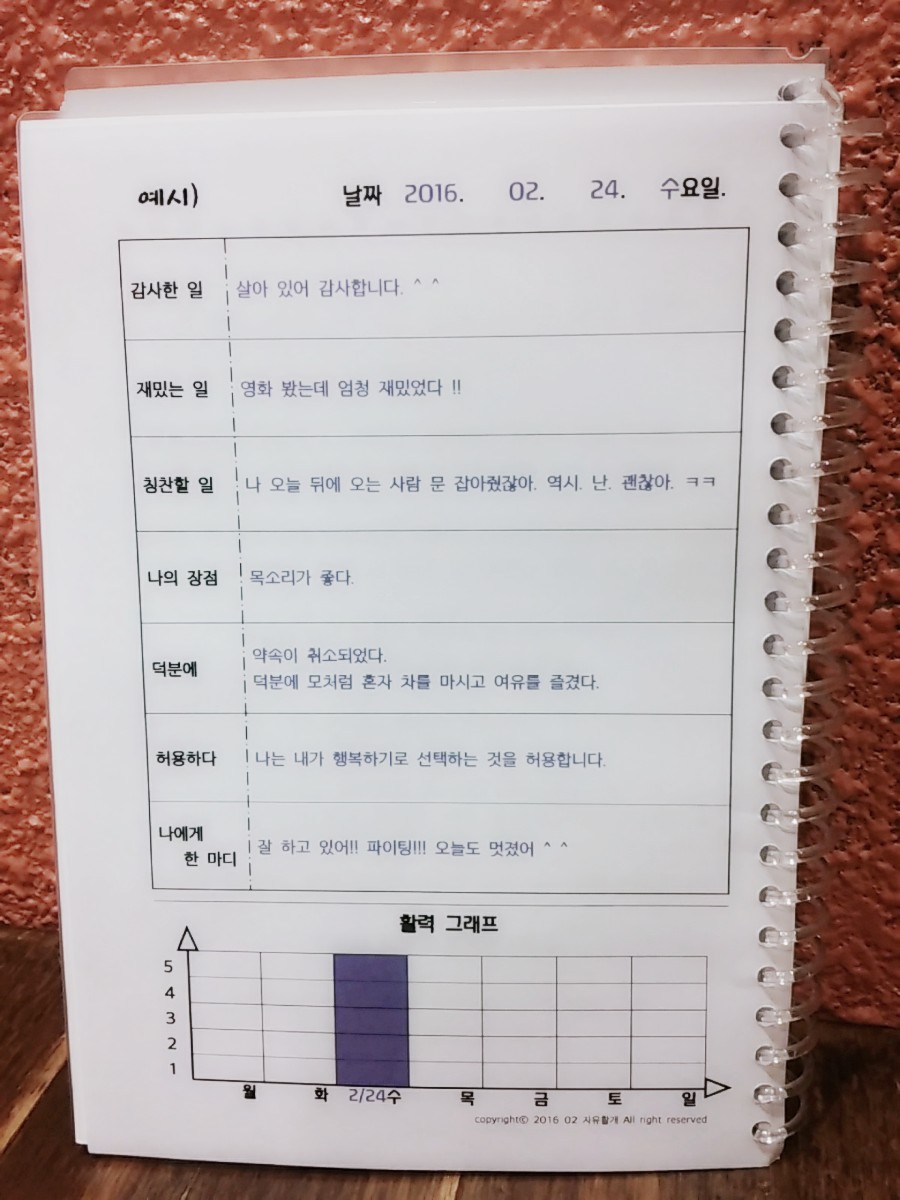 예시) 날짜 2016. 02. 24. 수요일.
감사한 일 살아 있어 감사합니다. ^ ^
재밌는 일 영화 봤는데 엄청 재밌었다 !!
칭찬할 일 나 오늘 뒤에 오는 사람 문 잡아줬잖아. 역시. 난. 괜찮아. ㅋㅋ
나의 장점 목소리가 좋다.
덕분에 약속이 취소되었다.
덕분에 모처럼 혼자 차를 마시고 여유를 즐겼다.
허용하다 나는 내가 행복하기로 선택하는 것을 허용합니다.
나에게
한 마디 잘 하고 있어!! 파이팅!!! 오늘도 멋졌어 ^ ^
활력 그래프
5
4
3
2
1
월 화 2/24수 목 금 토 일
copyright© 2016 02 사유활개 All right reserved